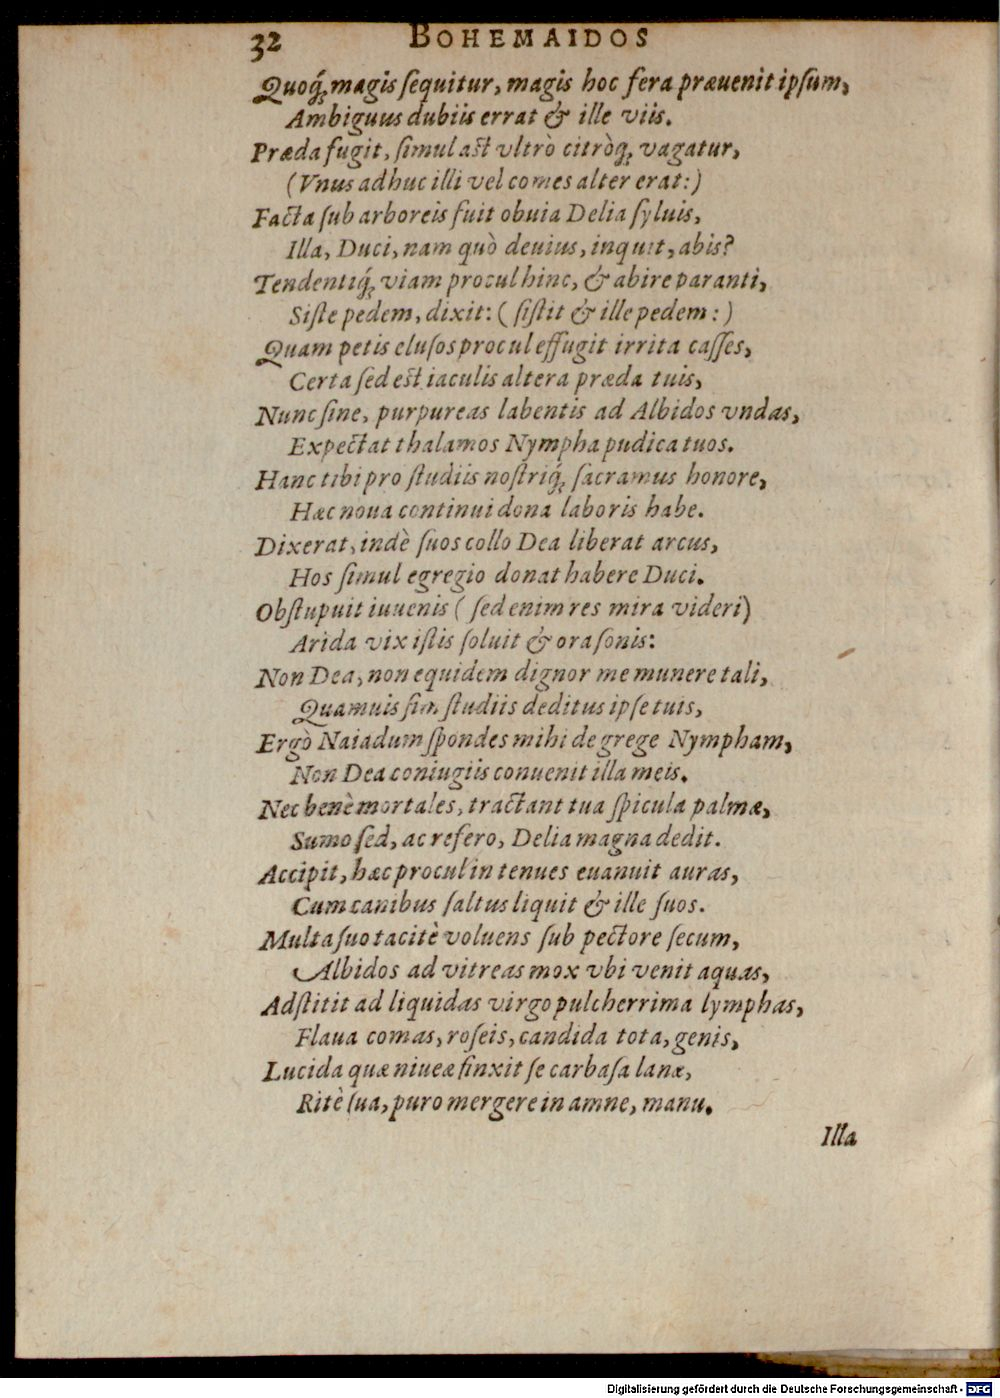 32 BOHEMAIDOS
Quoq́; magis ſequitur, magis hoc fera præuenit ipſum,
Ambiguus dubiis errat & ille viis.
Præda fugit, ſimul aſt vltrò citròq; vagatur,
(Vnus adhuc illi vel comes alter erat:)
Facta ſub arboreis fuit obuia Delia ſyluis,
Illa, Duci, nam quò deuius, inquit, abis?
Tendentiq́; viam procul hinc, & abire paranti,
Siſte pedem, dixit: (ſiſtit & ille pedem:)
Quam petis eluſos procul effugit irrita caſſes,
Certa ſed eſt iaculis altera præda tuis,
Nunc ſine, purpureas labentis ad Albidos vndas,
Expectat thalamos Nympha pudica tuos.
Hanc tibi pro ſtudiis noſtriq́; ſacramus honore,
Hæc noua continui dona laboris habe.
Dixerat, indè ſuos collo Dea liberat arcus,
Hos ſimul egregio donat habere Duci.
Obſtupuit iuuenis (ſed enim res mira videri)
Arida vix iſtis ſoluit & ora ſonis:
Non Dea, non equidem dignor me munere tali,
Quamuis ſim ſtudiis deditus ipſe tuis,
Ergò Naiadum ſpondes mihi de grege Nympham,
Non Dea coniugiis conuenit illa meis.
Nec benè mortales, tractant tua ſpicula palmæ,
Sumo ſed, ac refero, Delia magna dedit.
Accipit, hæc procul in tenues euanuit auras,
Cum canibus ſaltus liquit & ille ſuos.
Multa ſuo tacitè voluens ſub pectore ſecum,
Albidos ad vitreas mox vbi venit aquas,
Adſtitit ad liquidas virgo pulcherrima lymphas,
Flaua comas, roſeis, candida tota, genis,
Lucida quæ niueæ finxit ſe carbaſa lanæ,
Ritè ſua, puro mergere in amne, manu.
Illa
Digitalisierung gefördert durch die Deutsche Forschungsgemeinschaft - DFG